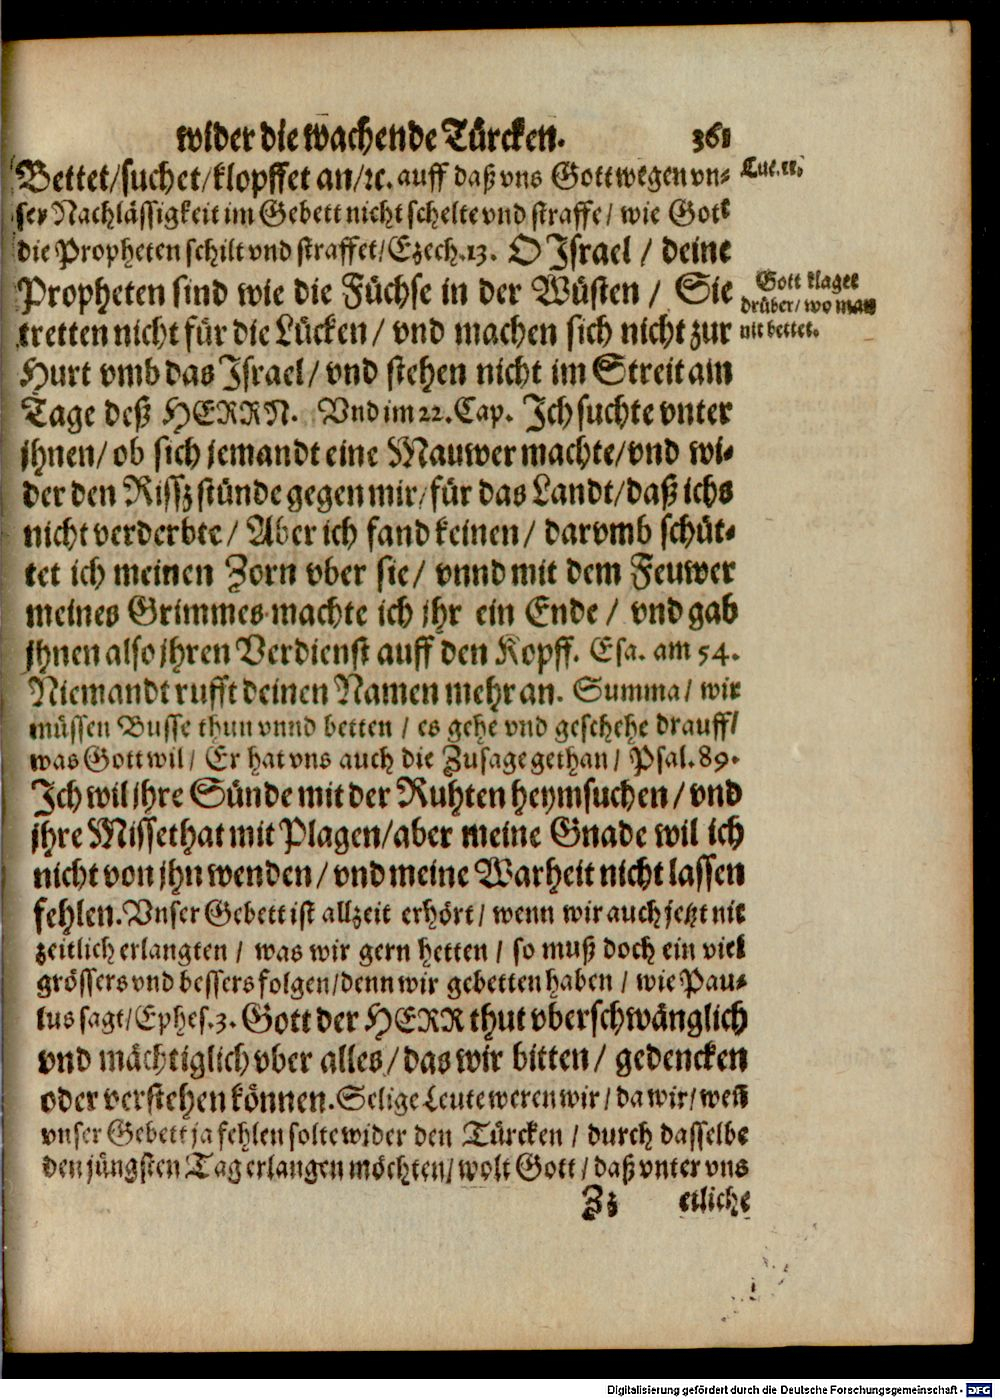 wider die wachende Türcken. 361
Bettet/suchet/klopffet an/ꝛc. auff daß vns Gott wegen vn-
ser Nachlässigkeit im Gebett nicht schelte vnd straffe/ wie Gott
die Propheten schilt vnd straffet/Ezech.13. O Israel / deine
Propheten sind wie die Füchse in der Wüsten / Sie
tretten nicht für die Lücken/ vnd machen sich nicht zur
Hurt vmb das Israel/ vnd stehen nicht im Streit am
Tage deß HERRN. Vnd im 22. Cap. Ich suchte vnter
jhnen/ ob sich jemandt eine Mauwer machte/vnd wi-
der den Rissz stünde gegen mir/für das Landt/daß ichs
nicht verderbte/ Aber ich fand keinen/ darvmb schüt-
tet ich meinen Zorn vber sie/ vnnd mit dem Feuwer
meines Grimmes machte ich jhr ein Ende / vnd gab
jhnen also jhren Verdienst auff den Kopff. Esa. am 54.
Niemandt rufft deinen Namen mehr an. Summa/ wir
müssen Busse thun vnnd betten / es gehe vnd geschehe drauff/
was Gott wil/ Er hat vns auch die Zusage gethan/ Psal.89.
Ich wil jhre Sünde mit der Ruhten heymsuchen/vnd
jhre Missethat mit Plagen/aber meine Gnade wil ich
nicht von jhn wenden/vnd meine Warheit nicht lassen
fehlen. Vnser Gebett ist allzeit erhört/ wenn wir auch jetzt nit
zeitlich erlangten / was wir gern hetten / so muß doch ein viel
grössers vnd bessers folgen/denn wir gebetten haben / wie Pau-
lus sagt/Ephes.3. Gott der HERR thut vberschwänglich
vnd mächtiglich vber alles/das wir bitten/ gedencken
oder verstehen können. Selige Leute weren wir/da wir/weil
vnser Gebett ja fehlen solte wider den Türcken / durch dasselbe
den jüngsten Tag erlangen möchten/wolt Gott/daß vnter vns
Zz etliche
Luc.11.
Gott klaget
drüber/wo man
nit bettet.
Digitalisierung gefördert durch die Deutsche Forschungsgemeinschaft - DFG